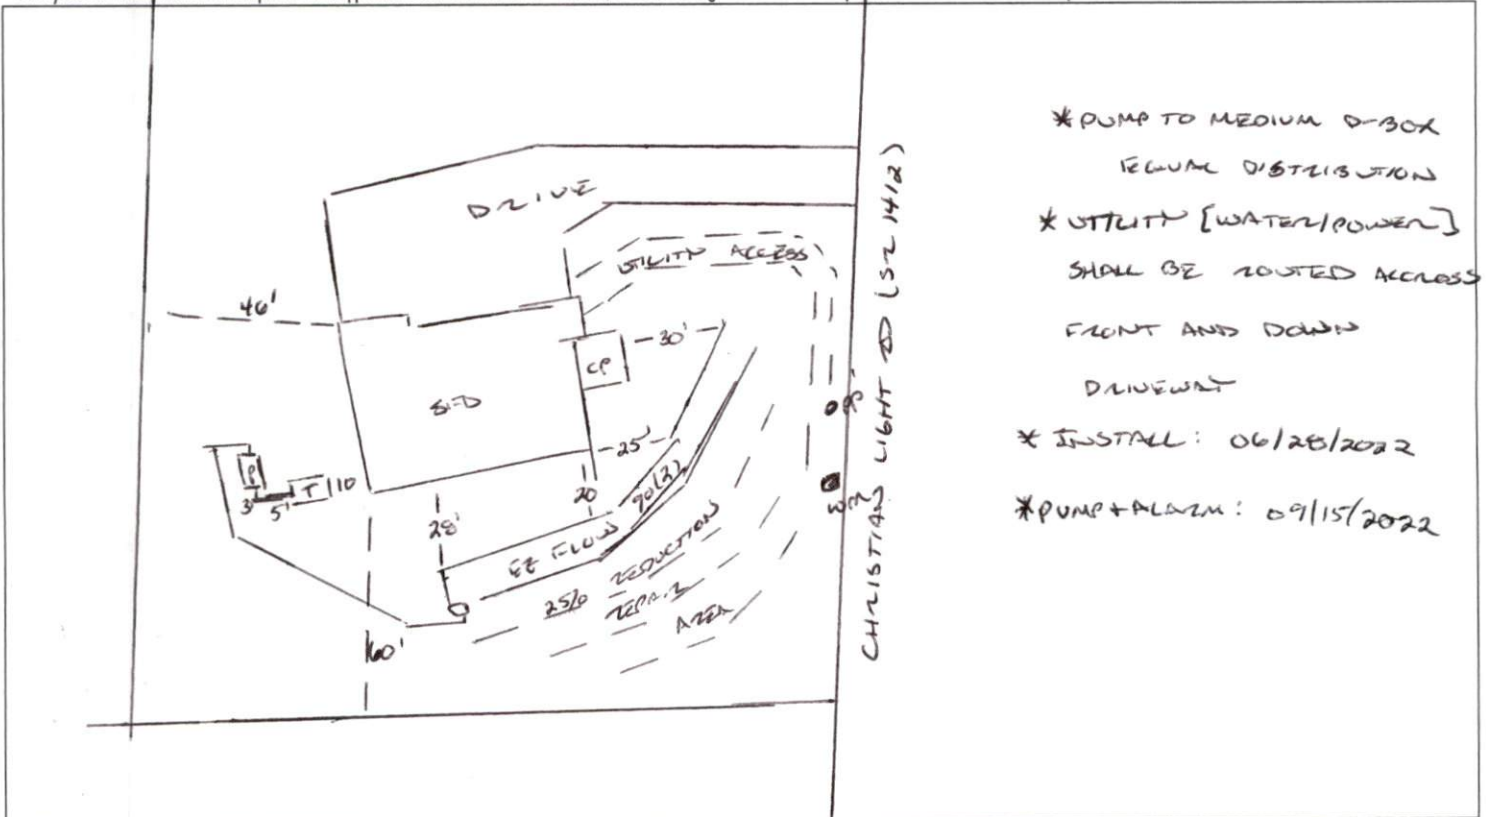 DRIVE
UTILITY ACCESS
46'
30'
CP
SFD
25'
P
T
10
3'
5'
20
90(2)
28'
EZ FLOW
25% REDUCTION
REPAIR
AREA
60'
CHRISTIAN LIGHT RD (SR 1412)
*PUMP TO MEDIUM D-BOX
EQUAL DISTRIBUTION
*UTILITY [WATER/POWER]
SHALL BE ROUTED ACCROSS
FRONT AND DOWN
DRIVEWAY
* INSTALL: 06/28/2022
*PUMP+ALARM: 09/15/2022